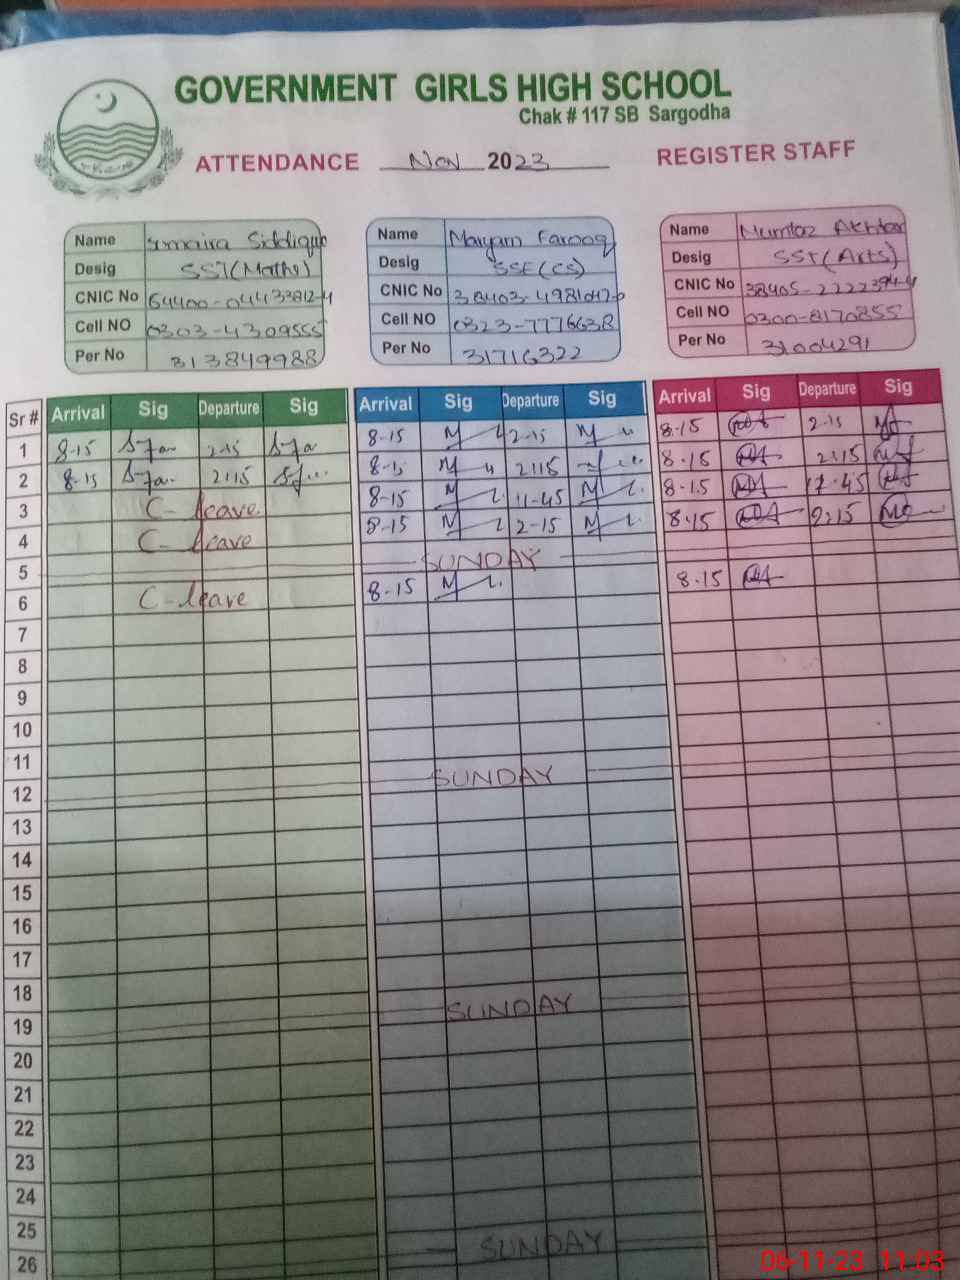 GOVERNMENT GIRLS HIGH SCHOOL
Chak # 117 SB Sargodha
ATTENDANCE Nov 2023 REGISTER STAFF
Name Siddique
Desig SST(Maths)
CNIC No
Cell NO 0303-4309555
Per No 313849988
Name Maryam Farooq
Desig SSE(CS)
CNIC No
Cell NO 0323-7776638
Per No 31716322
Name Mumtaz Akhtar
Desig SST(Arts)
CNIC No
Cell NO 0300-8170855
Per No 31004291
Sr # Arrival Sig Departure Sig Arrival Sig Departure Sig Arrival Sig Departure Sig
1 8-15 2-15 8-15 M 2-15 M 8-15 2-15
2 8-15 2:15 8-15 M 2:15 8-15 2:15
3 C-leave 8-15 M 11-45 M 8-15 45
4 C-leave 8-15 M 2-15 M 8-15 2:15
5 SUNDAY
6 C-leave 8-15 M 8-15
7
8
9
10
11
12 SUNDAY
13
14
15
16
17
18
19 SUNDAY
20
21
22
23
24
25
26 SUNDAY
06-11-23 11:03